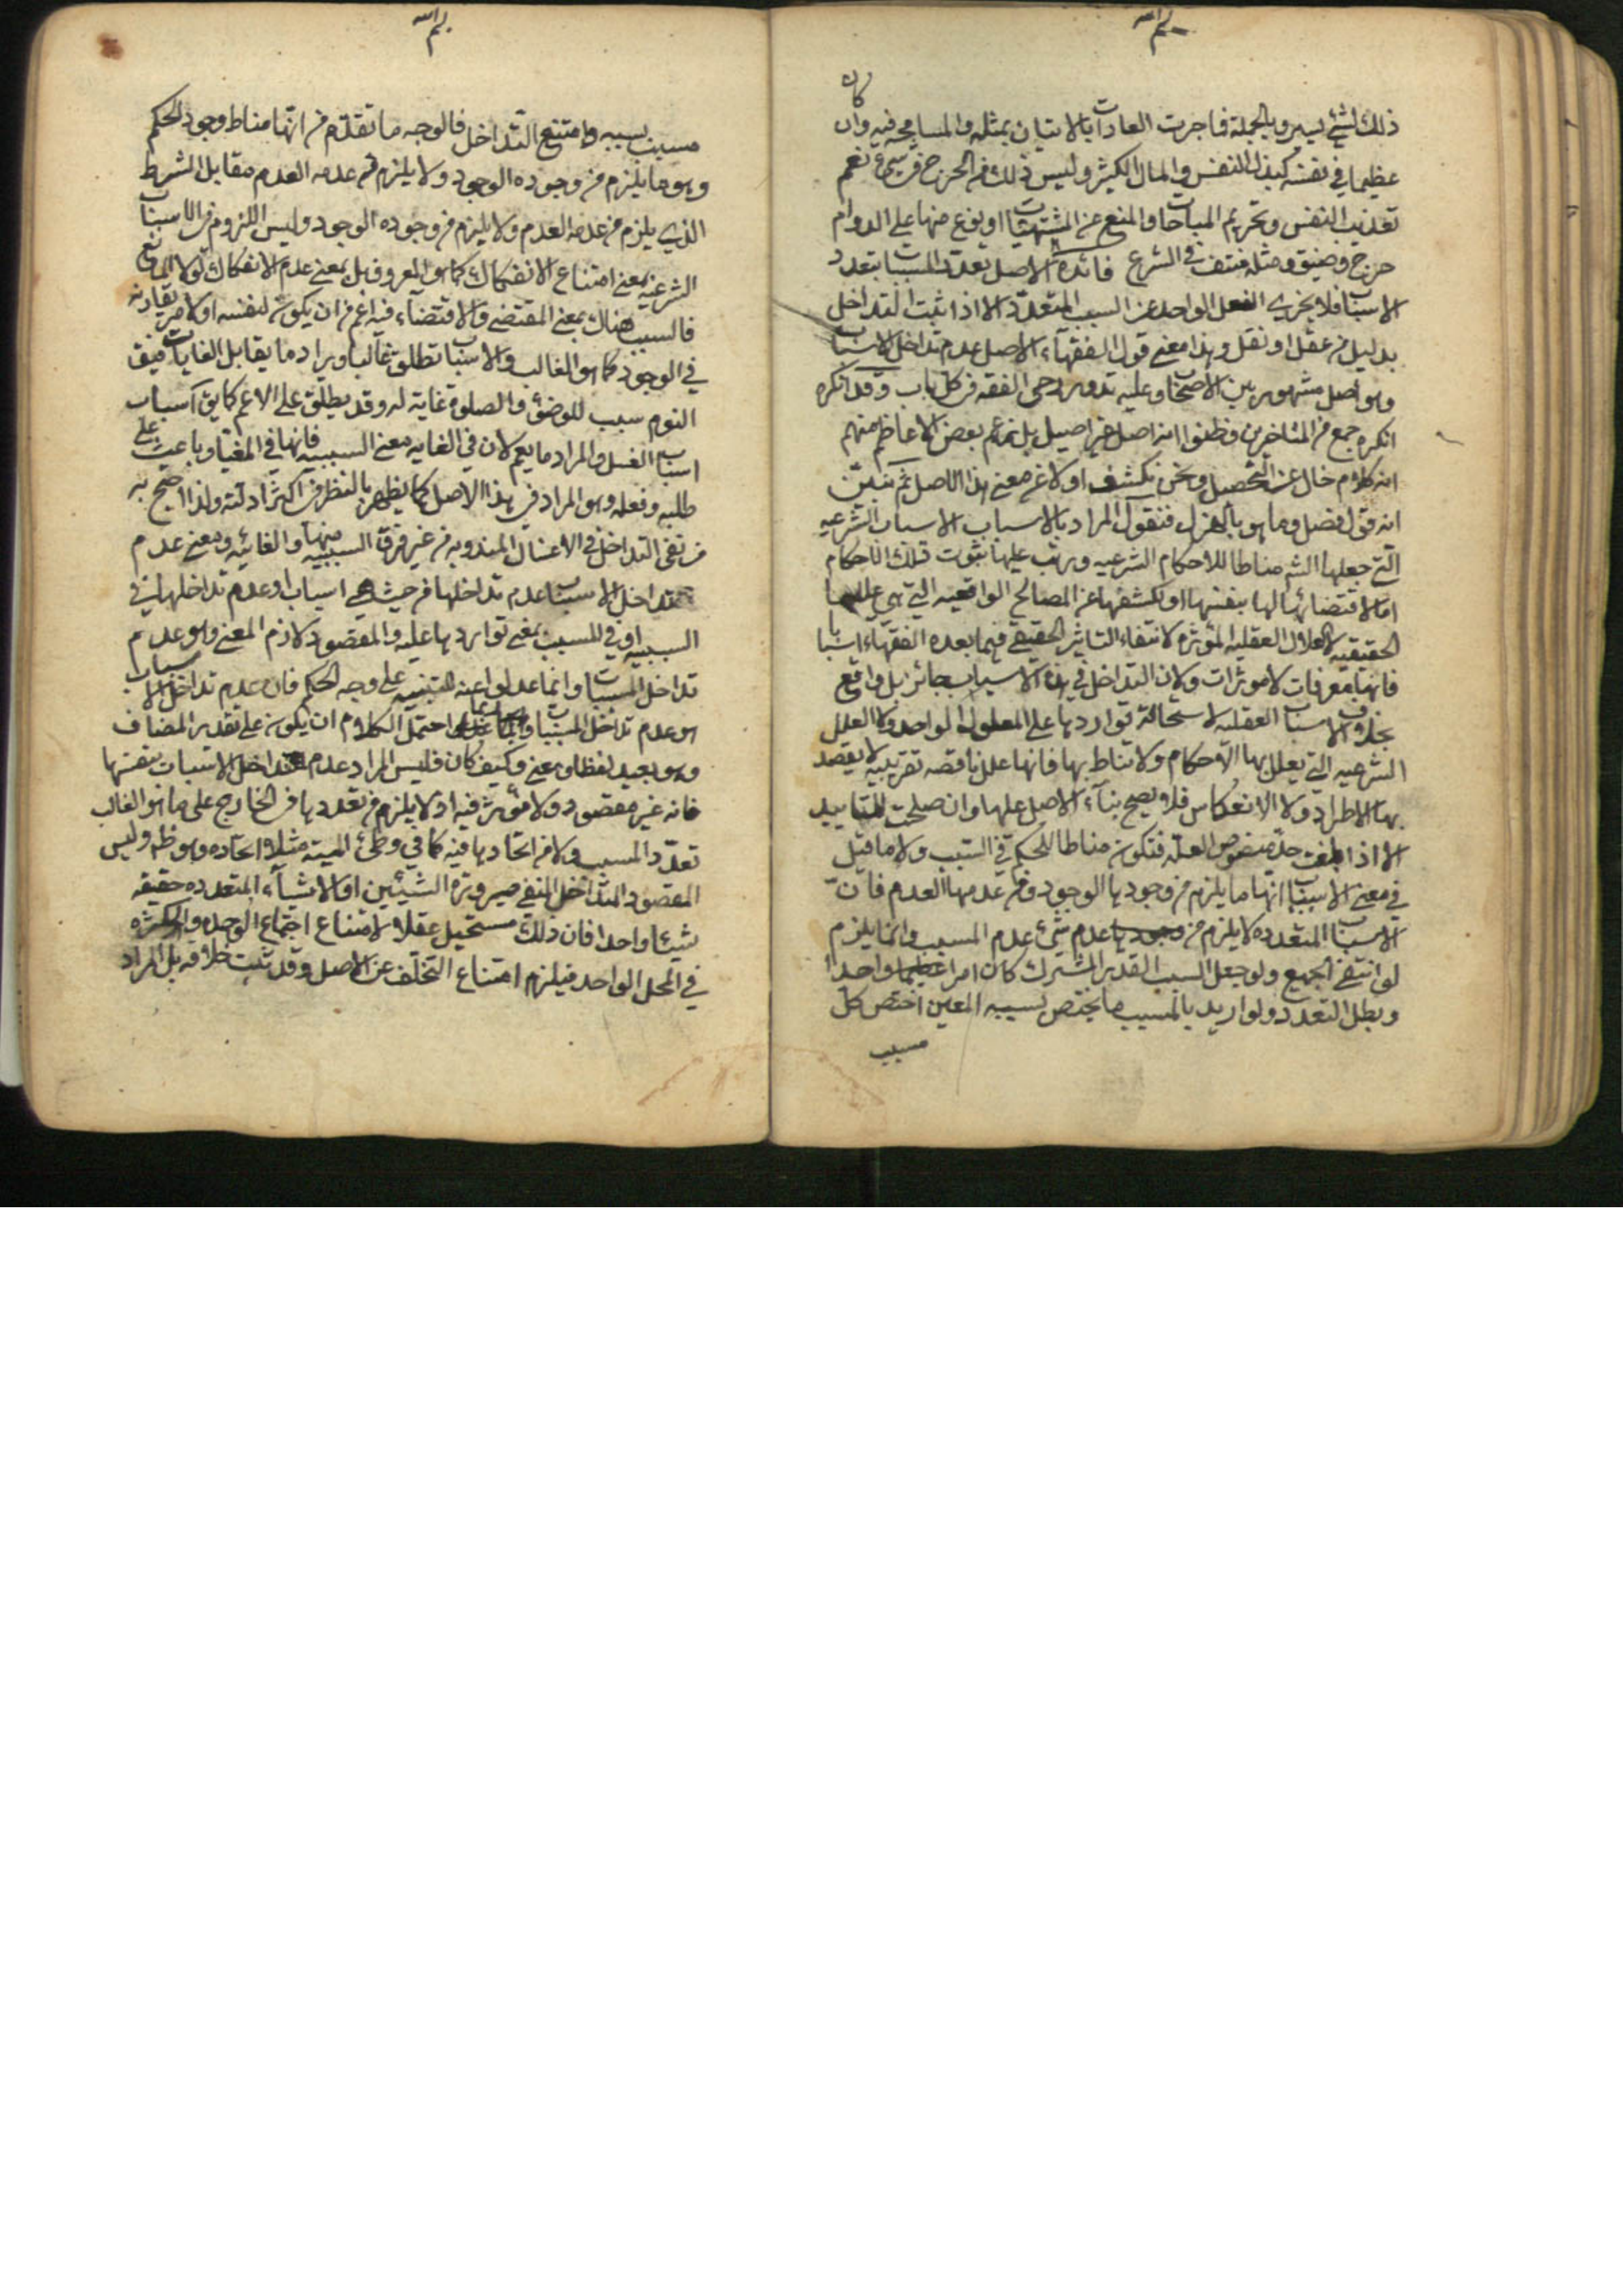 بسم الله
كان
ذلك لشئ يسير وبالجملة فما جرت العادات بالاتيان بمثله والمسامحه فيه وان
عظيما في نفسه كبذل النفس والمال الكثير وليس ذلك من الحرج في شئ نعم
تعذيب النفس وتحريم المباحات والمنع عن المشتهيات او نوع منها على الدوام
حرج وضيق ومثله منتف في الشرع فائدة الاصل تعدد المسببات بتعدد
الاسباب فلا يجزي الفعل الواحد عن السبب المتعدد الا اذا ثبت التداخل
بدليل من عقل او نقل وهذا معنى قول الفقهاء الاصل عدم تداخل الاسباب
وهو اصل مشهور بين الاصحاب وعليه تدور رحى الفقه في كل باب وقد انكره
انكره جمع من المتاخرين وظنوا انه اصل غير اصيل بل زعم بعض الاعاظم منهم
انه كلام خال عن التحصيل ونحن نكشف اولا عن معنى هذا الاصل ثم نبين
انه قول فصل وما هو بالهزل فنقول المراد بالاسباب الاسباب الشرعيه
التي جعلها الشم مناطا للاحكام الشرعيه ورتب عليها ثبوت تلك الاحكام
اما لاقتضائها لها بنفسها او لكشفها عن المصالح الواقعيه التي هي عللها
الحقيقيه لا العلل العقليه المؤثره لانتفاء التاثير الحقيقي فيما يعده الفقهاء اسبابا
فانها معرفات لا مؤثرات ولان التداخل في هذه الاسباب جائز بل واقع
بخلاف الاسباب العقليه لاستحالة تواردها على المعلول الواحد ولا العلل
الشرعيه التي يعلل بها الاحكام ولا تناط بها فانها علل ناقصه تقريبيه لا يقصد
بها الاطراد ولا الانعكاس فلا يصح بناء الاصل عليها وان صلحت للتاييد
الا اذا بلغت حد منصوص العلة فتكون مناطا للحكم في السبب ولا ما قيل
في معنى الاسباب انها ما يلزم من وجودها الوجود ومن عدمها العدم فان
الاسباب المتعدده لا يلزم من وجودها عدم شئ عدم المسبب وانما يلزم
لو انتفى الجميع ولو جعل السبب القدر المشترك كان امرا واحدا
وبطل التعدد ولو اريد بالمسبب ما يختص بسببه المعين اختص كل
مسبب
بسم الله
مسبب بسببه وامتنع التداخل فالوجه ما تقدم من انها مناط وجود الحكم
وهو ما يلزم من وجوده الوجود ولا يلزم من عدمه العدم مقابل الشرط
الذي يلزم من عدمه العدم ولا يلزم من وجوده الوجود وليس اللزوم في الاسباب
الشرعيه بمعنى امتناع الانفكاك كما هو المعروف بل بمعنى عدم الانفكاك لولا المانع
فالسبب هناك بمعنى المقتضي والاقتضاء فيه اعم من ان يكون لنفسه او لامر يقارنه
في الوجود كما هو الغالب والاسباب تطلق غالبا ويراد ما يقابل الغايات فيق
النوم سبب للوضؤ والصلوة غاية له وقد يطلق على الاعم كما يق اسباب
اسباب الغسل والمراد ما يعم لان في الغايه معنى السببيه فانها في المغيا وباعث على
طلبه وفعله وهو المراد في هذا الاصل كما يظهر بالنظر في اكثر ادلته ولذا احتج به
من نفى التداخل في الاغسال المندوبه من غير فرق السببيه منها والغائيه ومعنى عدم
تداخل الاسباب عدم تداخلها من حيث هي اسباب او عدم تداخلها في
السببيه او في المسبب بمعنى تواردها عليه والمقصود لازم المعنى وهو عدم
تداخل المسببات وانما عدلوا عنه للتنبيه على وجه الحكم فان عدم تداخل الاسباب
هو عدم تداخل المسببات احتمل الكلام ان يكون على تقدير المضاف
وهو بعيد لفظا ومعنى وكيف كان فليس المراد عدم تداخل الاسباب بنفسها
فانه غير مقصود ولا مؤثر فيه اذ لا يلزم من تعددها في الخارج على ما هو الغالب
تعدد المسبب ولا من اتحادها فيه كما في وطئ الميته مثلا اتحاده وهو ظم وليس
المقصود المتداخل المنفي صيرورة الشيئين او الاشياء المتعدده حقيقه
شيئا واحدا فان ذلك مستحيل عقلا لامتناع اجتماع الوحده والكثره
في المحل الواحد فيلزم امتناع التخلف عن الاصل وقد ثبت خلافه بل المراد